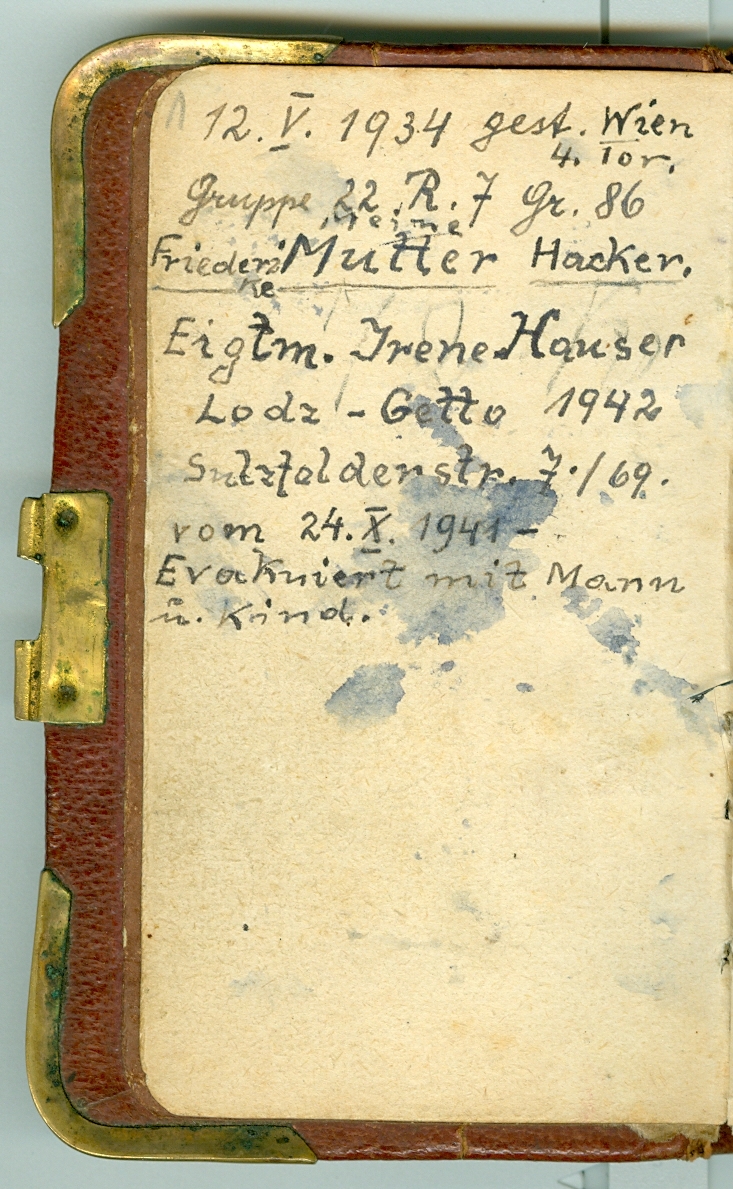 12. V. 1934 gest. Wien
4. Tor.
Gruppe 22. R. 7 Gr. 86
meine
Friederi Mutter Hacker.
ke
Eigtm. Irene Hauser
Lodz - Getto 1942
Sulzfelderstr. 7./69.
vom 24. X. 1941 -
Evakuiert mit Mann
u. Kind.